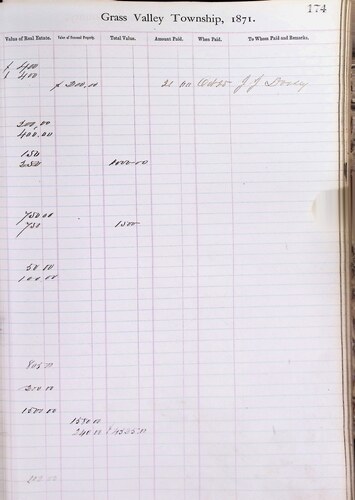 174
Grass Valley Township, 1871.
Value of Real Estate. Value of Personal Property. Total Value. Amount Paid. When Paid. To Whom Paid and Remarks.
400
400
200.00 Oct 25 J J
200,00
400.00
150
350 1000.00
750 00
750 1500
50 00
100.00
300 00
1500 00
240 00